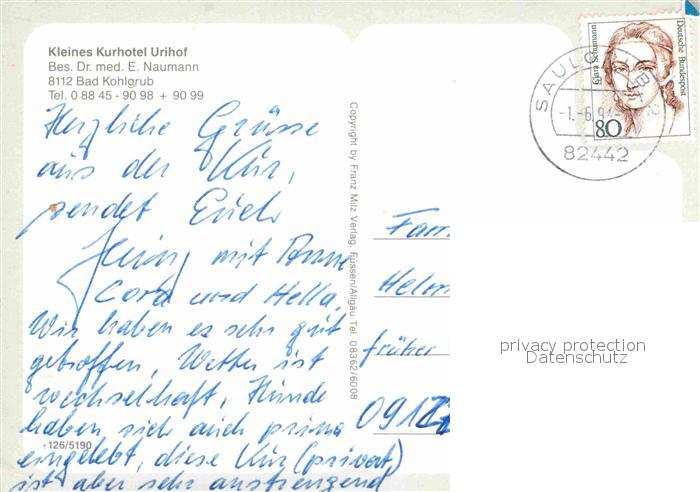 Kleines Kurhotel Urihof
Bes. Dr. med. E. Naumann
8112 Bad Kohlgrub
Tel. 0 88 45 - 90 98 + 90 99
Herzliche Grüsse
aus der Kur,
sendet Euch
Heinz mit Anne
Cora und Hella.
Wir haben es sehr gut
getroffen, Wetter ist
wechselhaft, Hunde
haben sich auch prima
eingelebt, diese Kur (privat)
ist aber sehr anstrengend
126/5190
Copyright by Franz Milz Verlag, Füssen/Allgäu Tel. 08362/6008
Deutsche Bundespost
Clara Schumann
80
SAULG
-1.-6.94
82442
Fam
Helm
früher
privacy protection
Datenschutz